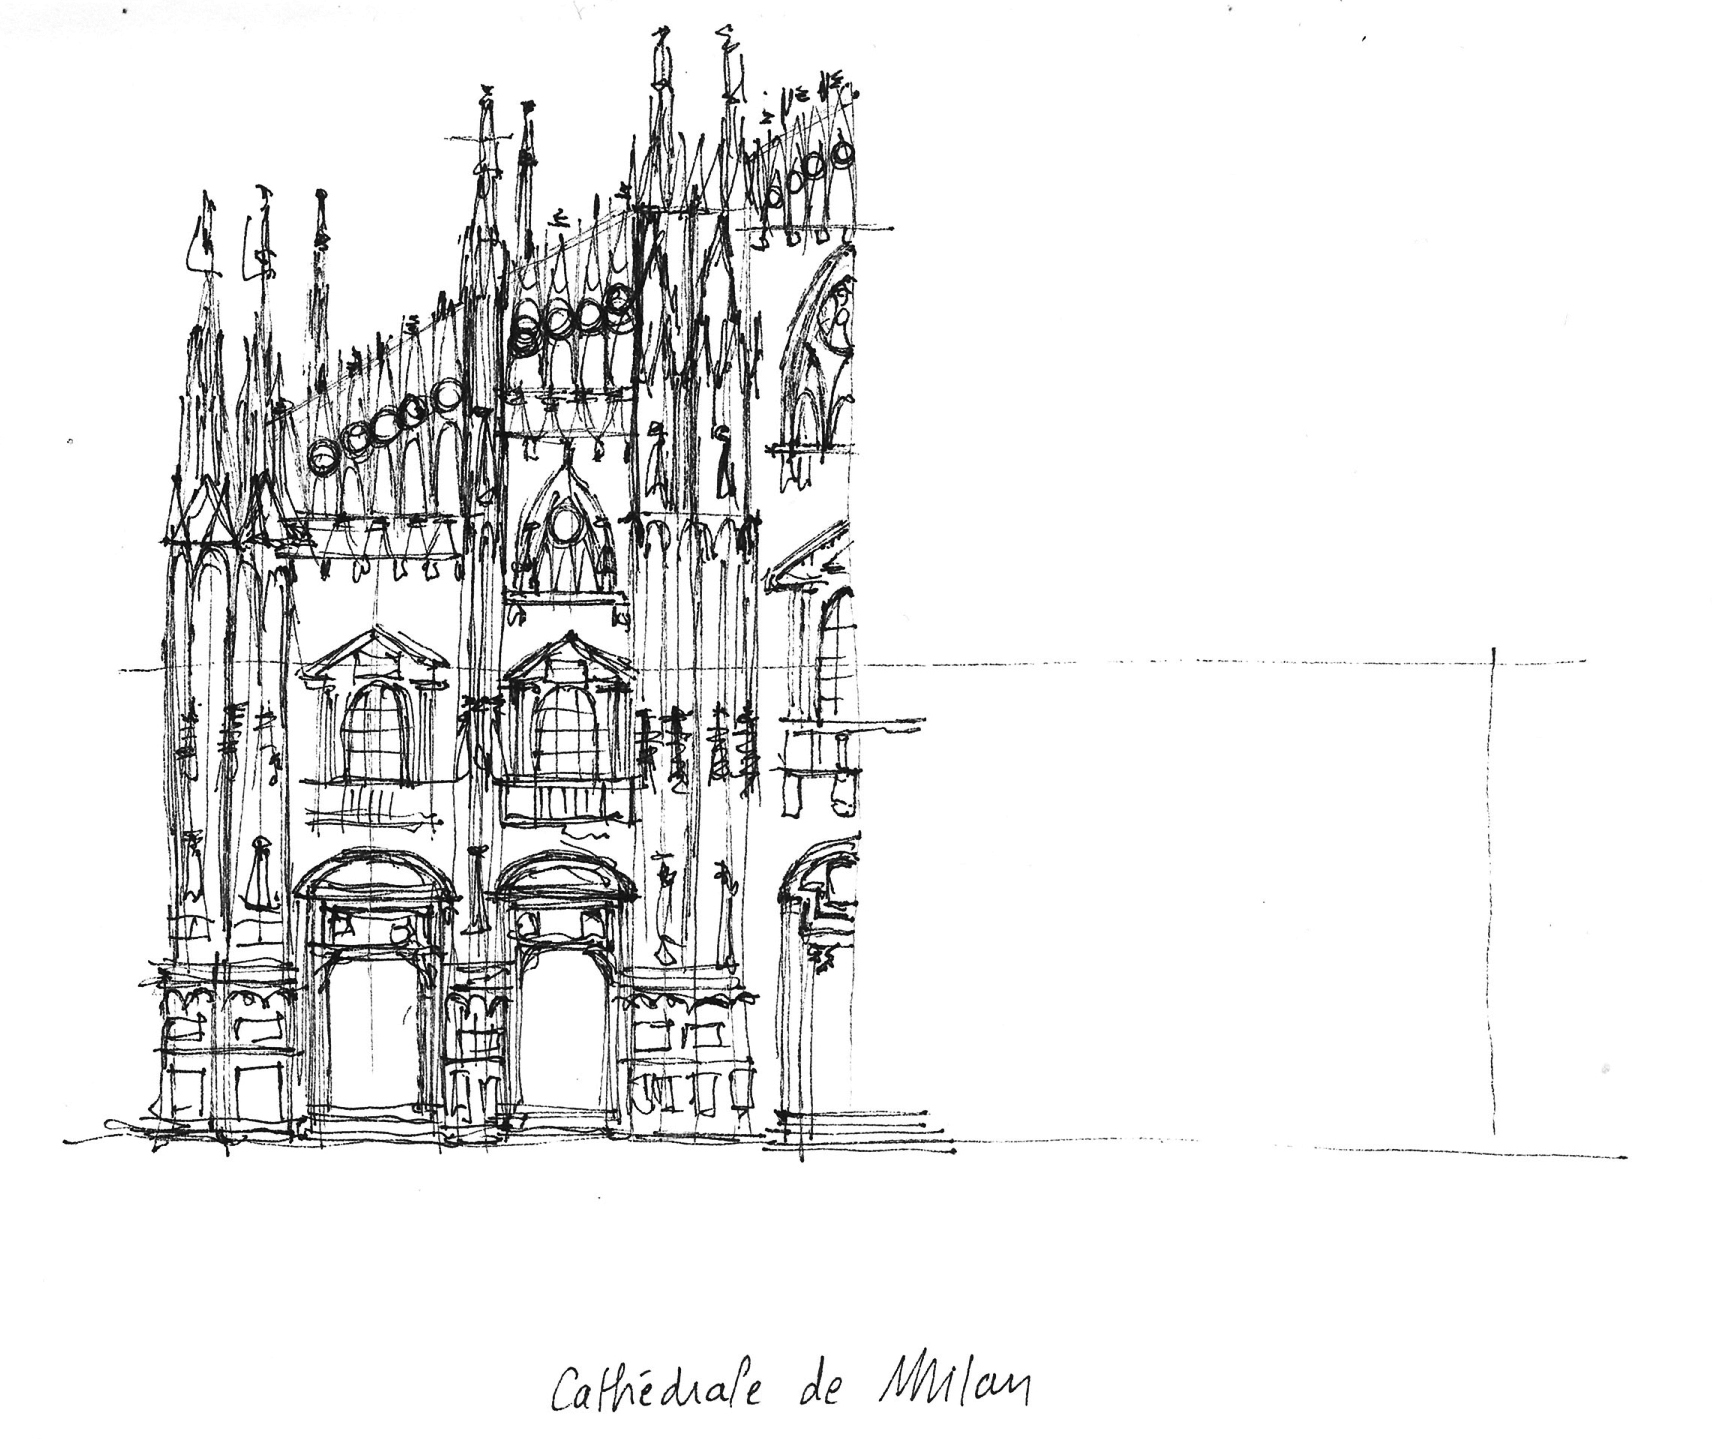 Cathédrale de Milan